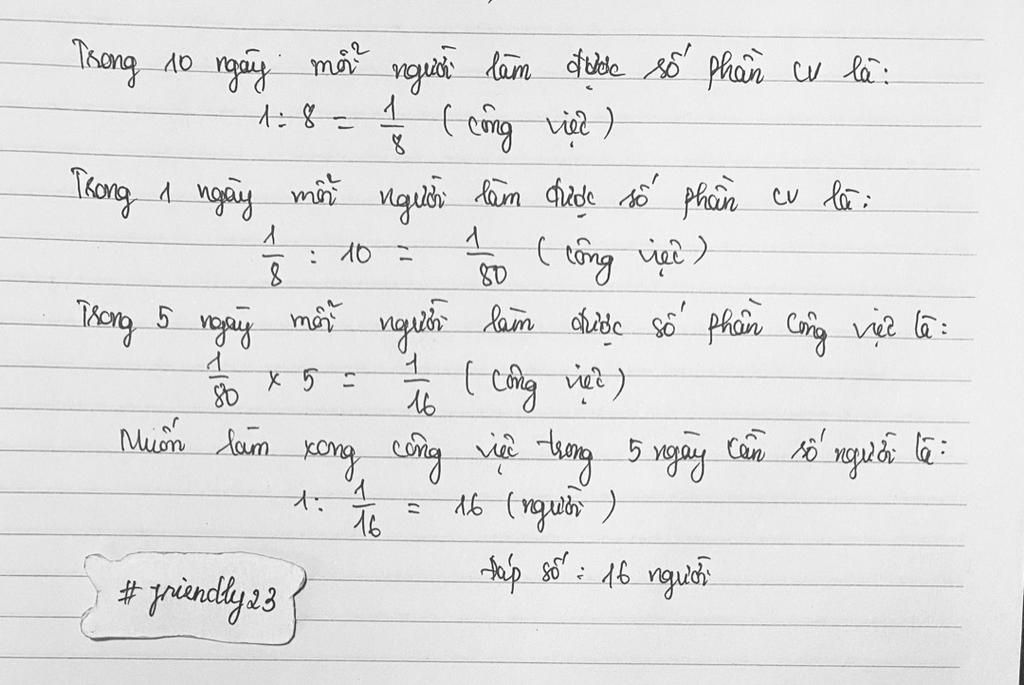 Trong 10 ngày mỗi người làm được số phần cv là:
1 : 8 = 1/8 (công việc)
Trong 1 ngày mỗi người làm được số phần cv là:
1/8 : 10 = 1/80 (công việc)
Trong 5 ngày mỗi người làm được số phần công việc là:
1/80 x 5 = 1/16 (công việc)
Muốn làm xong công việc trong 5 ngày cần số người là:
1 : 1/16 = 16 (người)
Đáp số : 16 người
# friendly23